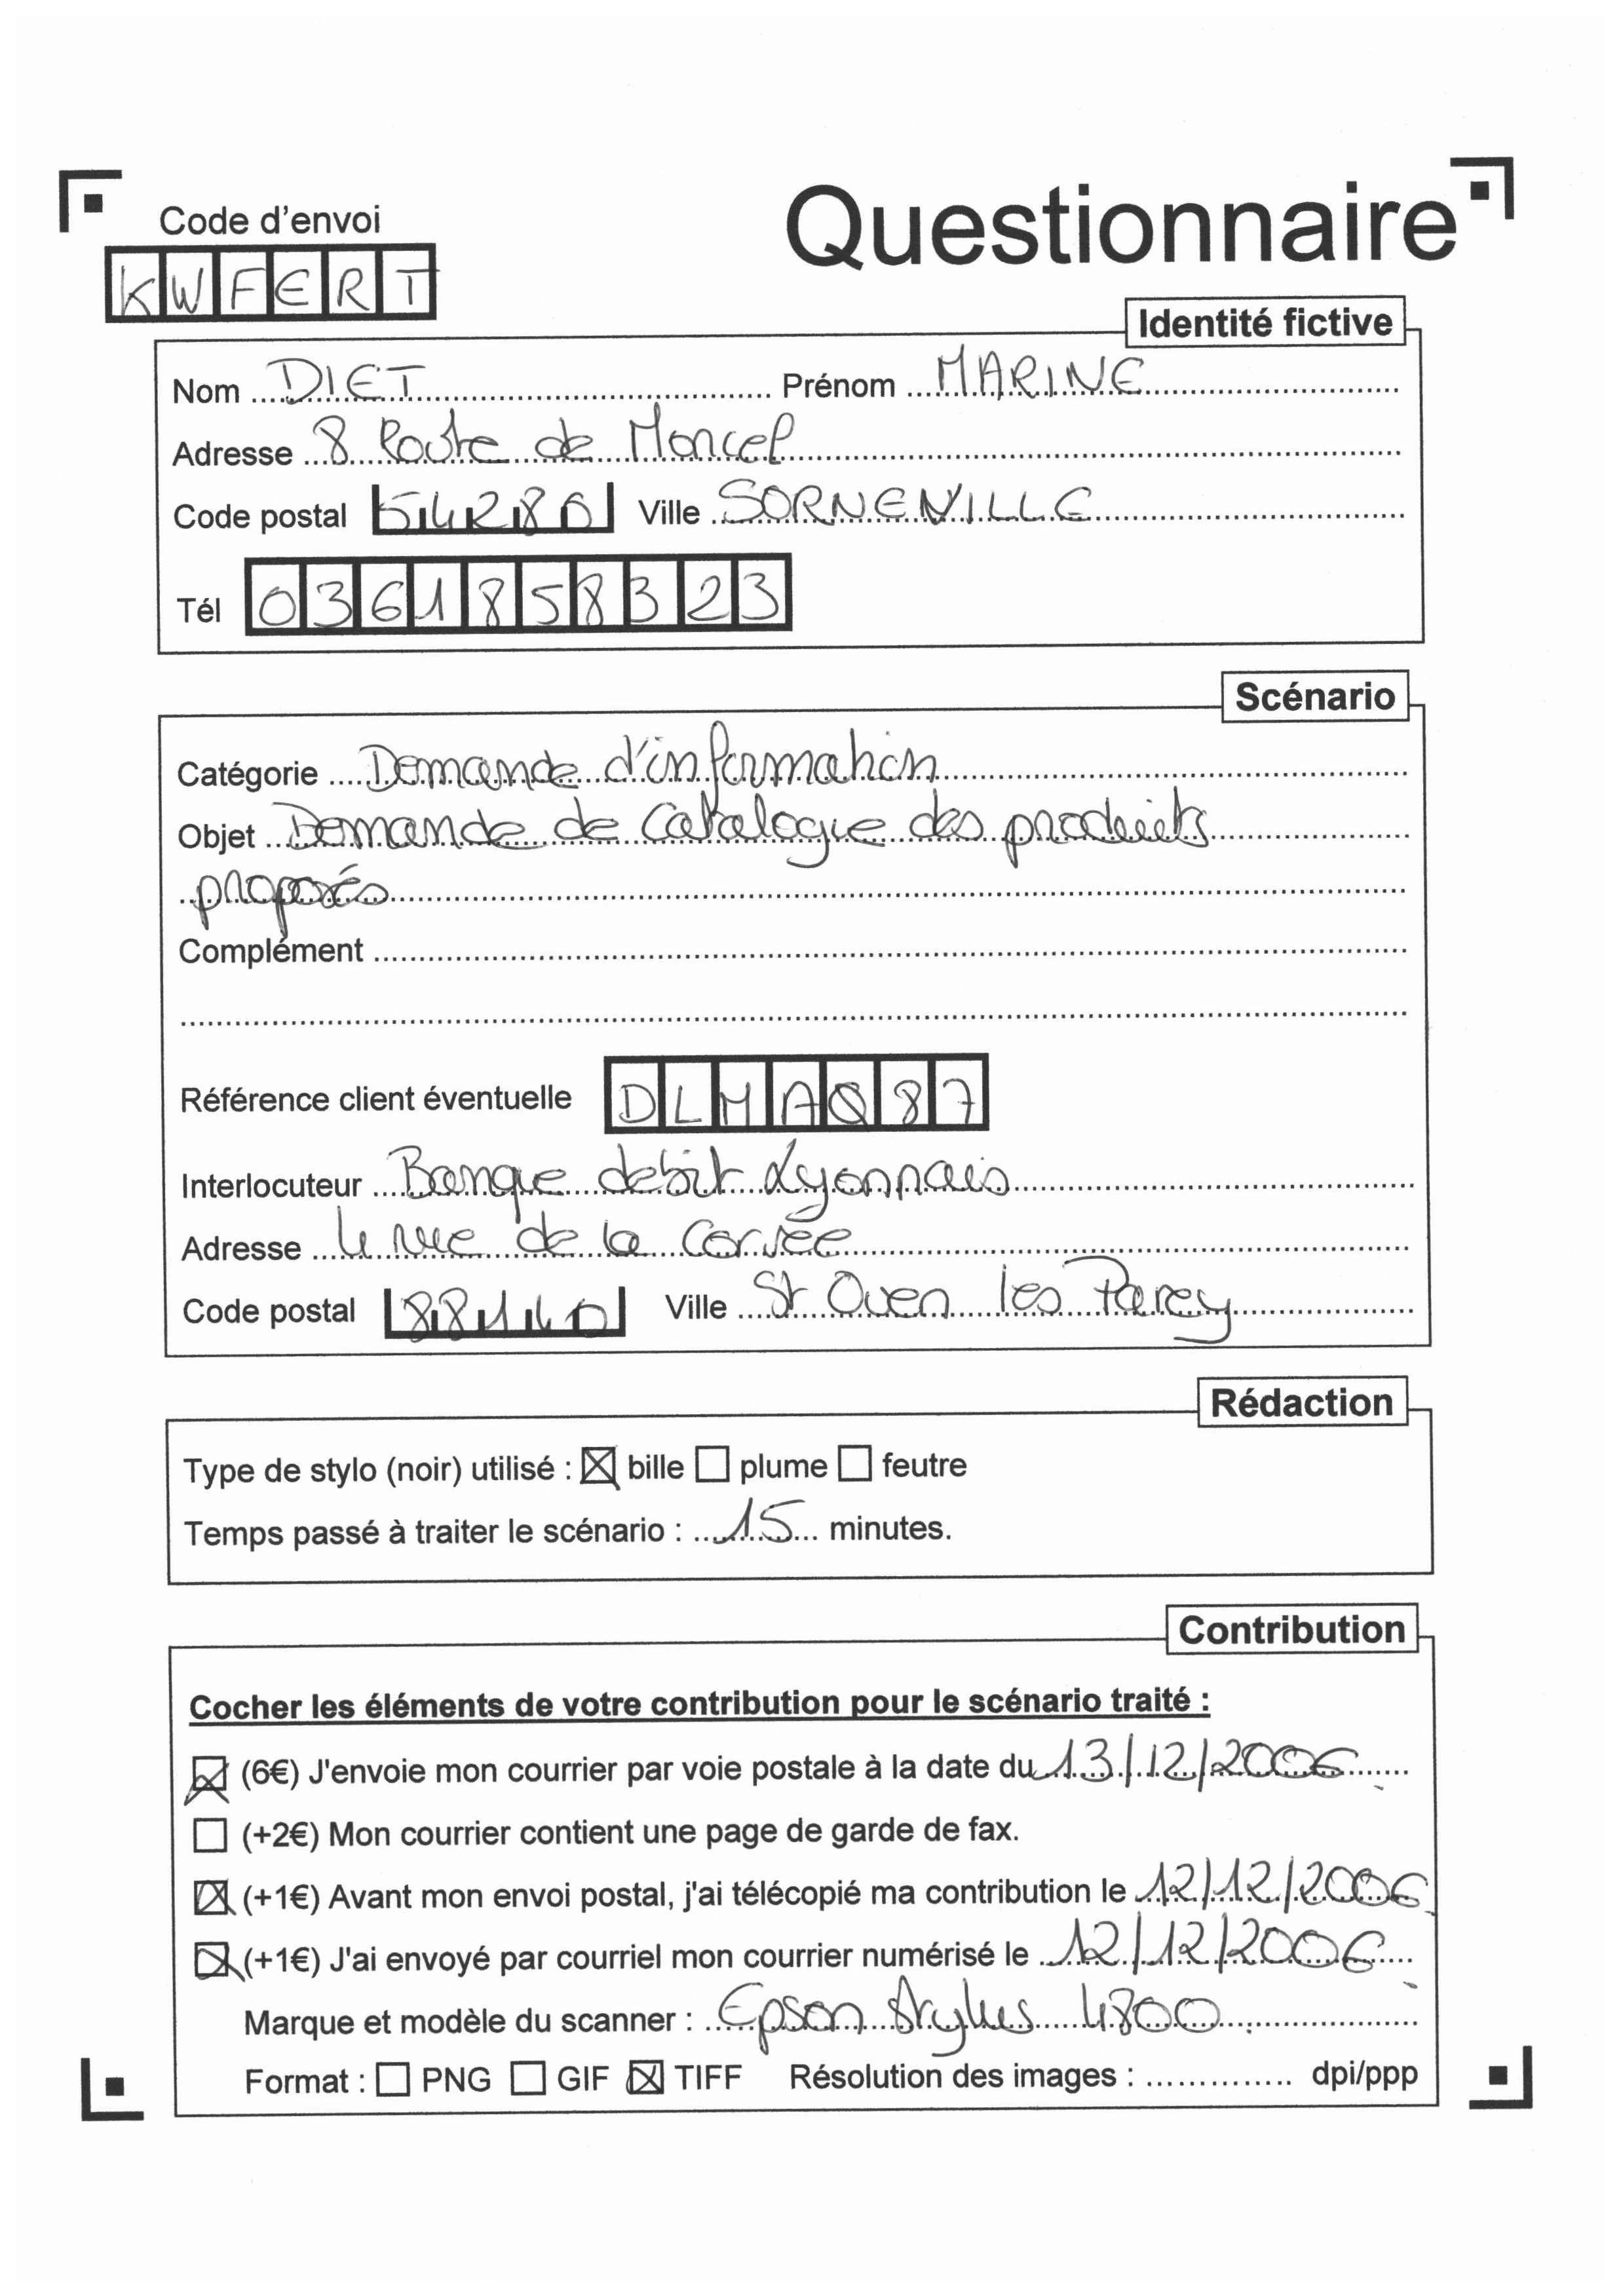 Questionnaire
Code d'envoi
KWFERT
Identité fictive
Nom DIET Prénom MARINE
Adresse 8 Route de Moncel
Code postal 54280 Ville SORNEVILLE
Tél 0361858323
Scénario
Catégorie Demande d'information
Objet Demande de catalogue des produits
proposés
Complément
Référence client éventuelle DLMAQ87
Interlocuteur Banque debit Lyonnais
Adresse 4 rue de la Corvée
Code postal 88140 Ville St Ouen les Parey
Rédaction
Type de stylo (noir) utilisé : bille plume feutre
Temps passé à traiter le scénario : 15 minutes.
Contribution
Cocher les éléments de votre contribution pour le scénario traité :
(6€) J'envoie mon courrier par voie postale à la date du 13/12/2006
(+2€) Mon courrier contient une page de garde de fax.
(+1€) Avant mon envoi postal, j'ai télécopié ma contribution le 12/12/2006
(+1€) J'ai envoyé par courriel mon courrier numérisé le 12/12/2006
Marque et modèle du scanner : Epson Stylus 4800
Format : PNG GIF TIFF Résolution des images : dpi/ppp